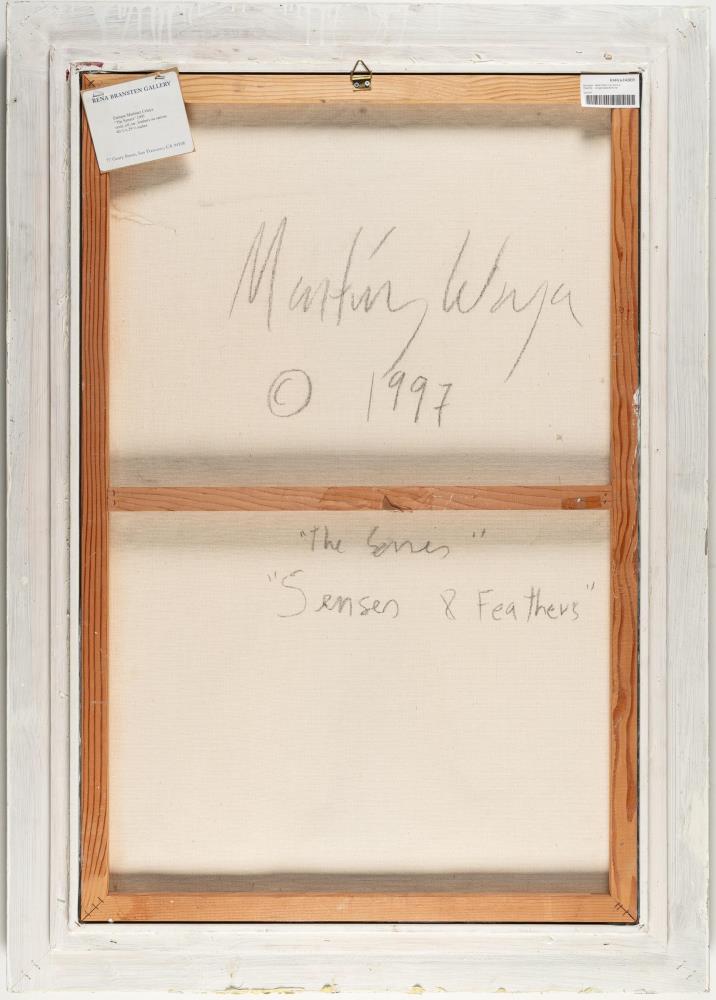 RENA BRANSTEN GALLERY
Enrique Martinez Celaya
"The Senses" 1997
on canvas
77 Geary Street, San Francisco, CA 94108
Martínez Celaya
© 1997
"The Senses"
"Senses & Feathers"